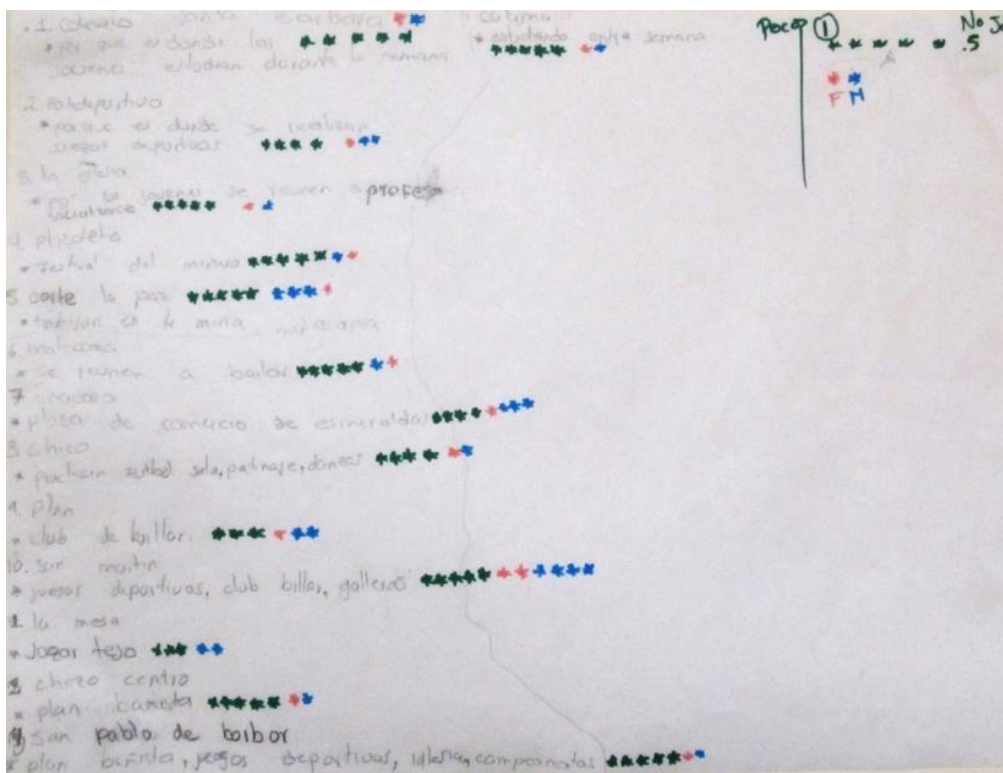 .1. Colegio Santa Barbara
* por que es donde los
jovenes estudian durante la semana
* estudiando entre semana
Poco ① No Jo
.5
F M
2. Polideportivo
* porque es donde se realizan
juegos deportivos
3. la iglesia
los jovenes se reunen a profes
4. plazoleta
* Festival del minero
5 corte la paz
* trabajan en la mina
6.
* se reunen a bailar
7
* plaza de comercio de esmeraldas
8 chico
* practican futbol sala, patinaje, danzas
9. Plan
* club de billar.
10. San martin
* juegos deportivos, club billar, galleras
la mesa
* Jogar tejo
centro
* plan banista
San pablo de borbor
* plan bañista, juegos deportivos, iglesia, campeonatos